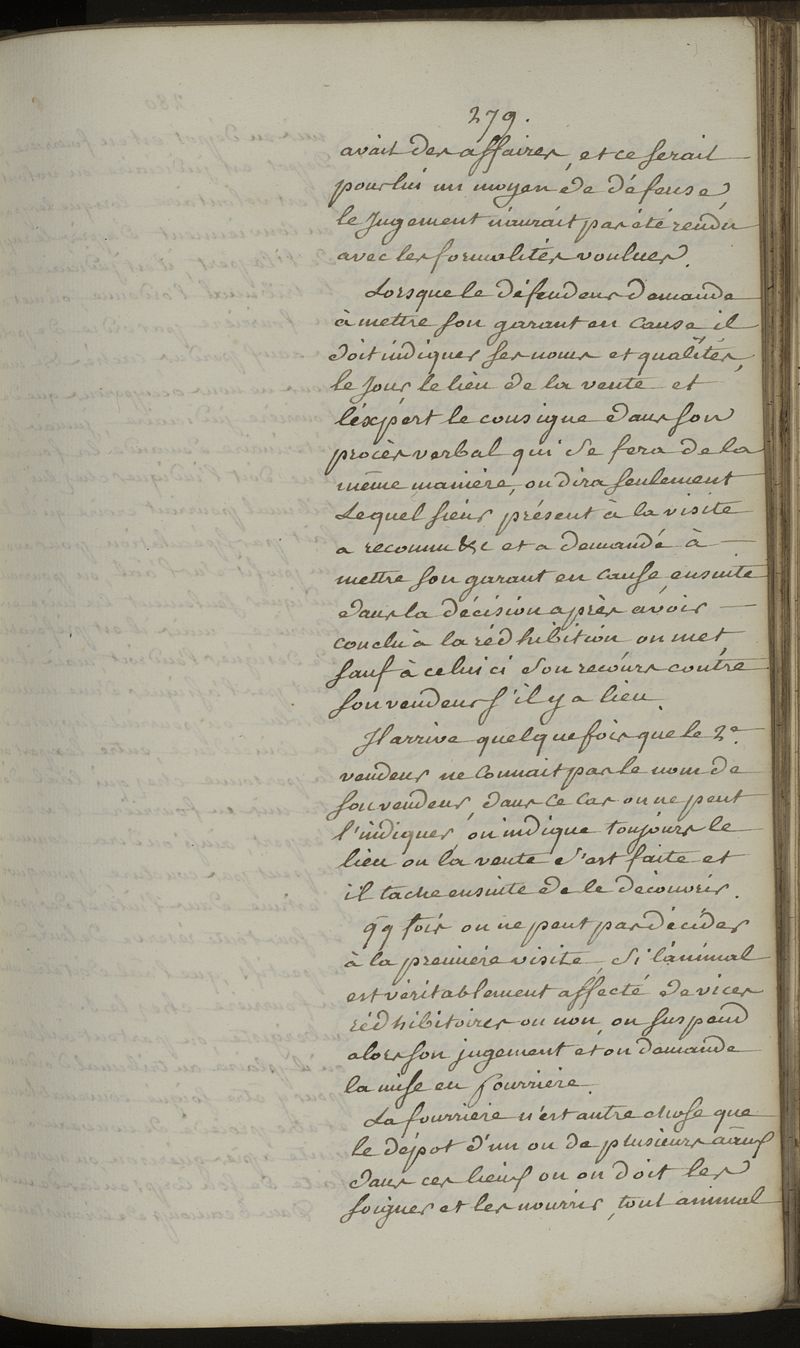 279.
avait des affaires, et ce serait
pour lui un moyen de défense,
le Jugement n'aurait pas été rendu
avec les formalités voulues.
Lorsque le défendeur demande
à mettre son garant en cause, il
doit indiquer ses noms et qualités,
le Jour le lieu de la vente et
l'expert le consigne dans son
procès verbal qui se fera de la
même manière, on dira seulement
Lequel sieur présent à la visite
a reconnu &c et a demandé à
mettre son garant en cause ensuite
dans la décision après avoir
conclu à la rédhibition on met,
sauf à celui ci son recours contre
son vendeur s'il y a lieu.
Il arrive quelque fois que le 2e
vendeur ne connait pas le nom de
son vendeur, dans ce cas on ne peut
l'indiquer, on indique toujours le
lieu ou la vente s'est faite et
il tache ensuite de le découvrir.
qq fois on ne peut pas décider
à la première visite, si l'animal
est véritablement affecté de vices
rédhibitoires ou non, on suspend
alors son jugement et on demande
la mise en fourrière.
La fourrière n'est autre chose que
le dépot d'un ou de plusieurs
dans ces lieux ou on doit les
soigner et les nourrir, tout animal